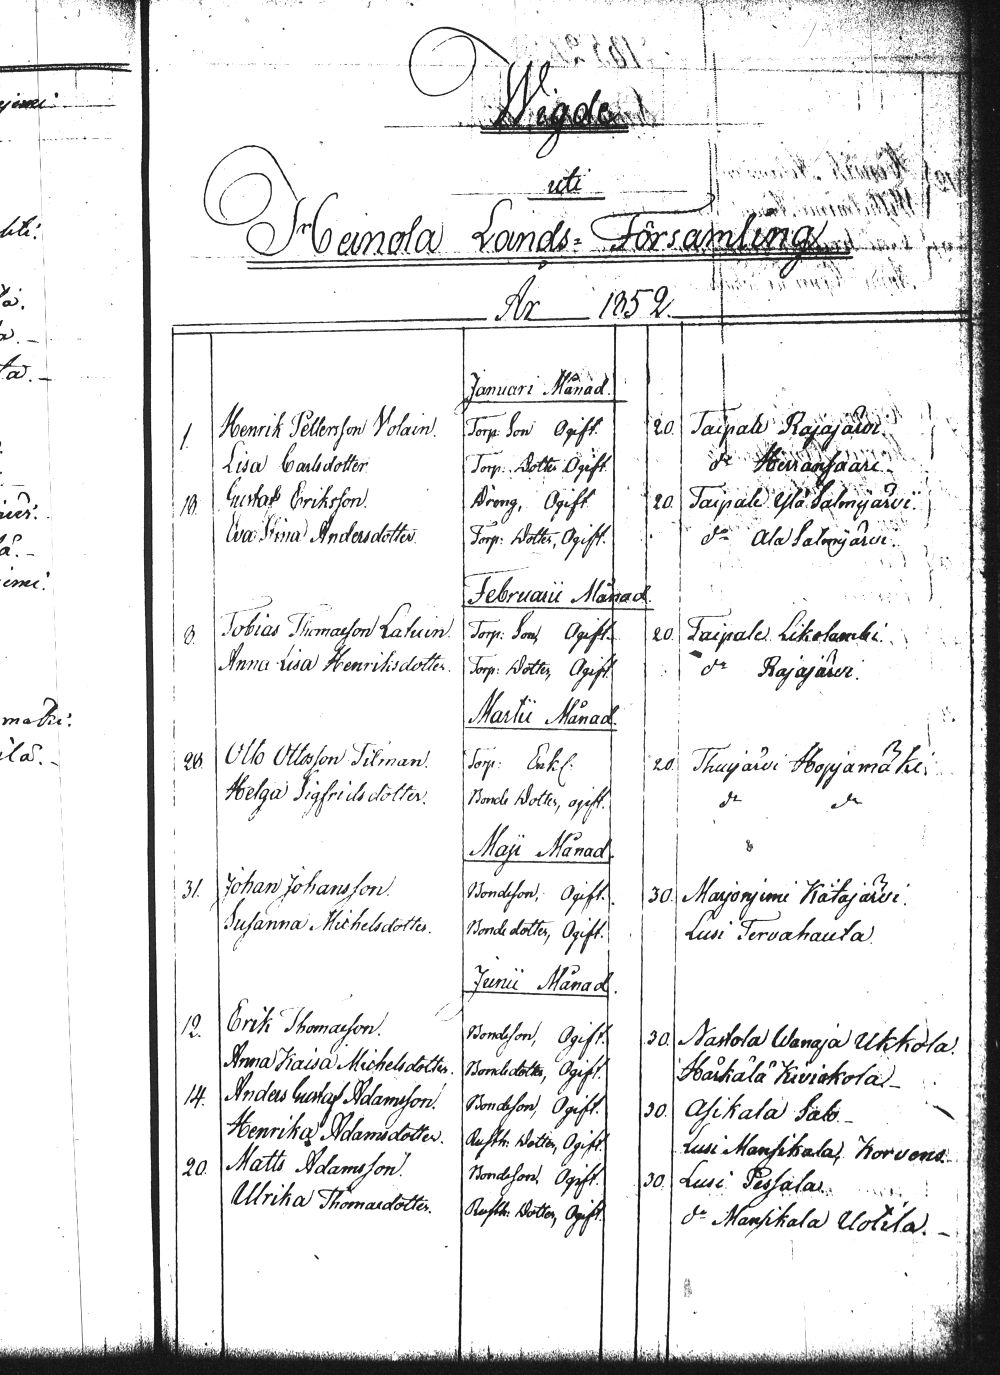 Wigde
uti
Heinola Lands= Församling
År 1852.
Januari Månad.
1. Henrik Pettersson Volain. Torp: Son Ogift. 20. Taipale Rajajärvi.
Lisa Carlsdotter Torp: Dotter Ogift. do Herransaari.
18. Gustaf Eriksson. Dreng, Ogift 20. Taipale Ylä Salmijärvi.
Eva Stina Andersdotter Torp: Dotter, Ogift. do Ala Salmijärvi.
Februarii Månad
8. Tobias Thomasson Torp: Son, Ogift. 20. Taipale Likolambi.
Anna Lisa Henriksdotter Torp: Dotter, Ogift. do Rajajärvi.
Martii Månad.
28. Otto Ottosson Tilman. Torp: Enkl: 20. Thujärvi Hopjamäki.
Helga Sigfridsdotter. Bonde Dotter, ogift. do do
Maji Månad.
31. Johan Johansson. Bondeson, Ogift. 30. Marjonjimi Kätajärvi.
Susanna Michelsdotter. Bondedotter, Ogift. Lusi Tervahauta.
Junii Månad.
12. Erik Thomasson. Bondeson, Ogift. 30. Nastola Wanaja Ukkola.
Anna Kaisa Michelsdotter. Bondedotter, Ogift. Härkälä Kiviokola
14. Anders Gustaf Adamsson. Bondeson, Ogift. 30. Asikala Salo
Henrika Adamsdotter. Rusth: Dotter, Ogift. Lusi Mansikala, Korvens
20. Matts Adamsson. Bondeson, Ogift. 30. Lusi Pessala.
Ulrika Thomasdotter. Rusth: Dotter, Ogift. do Mansikala Uotila.